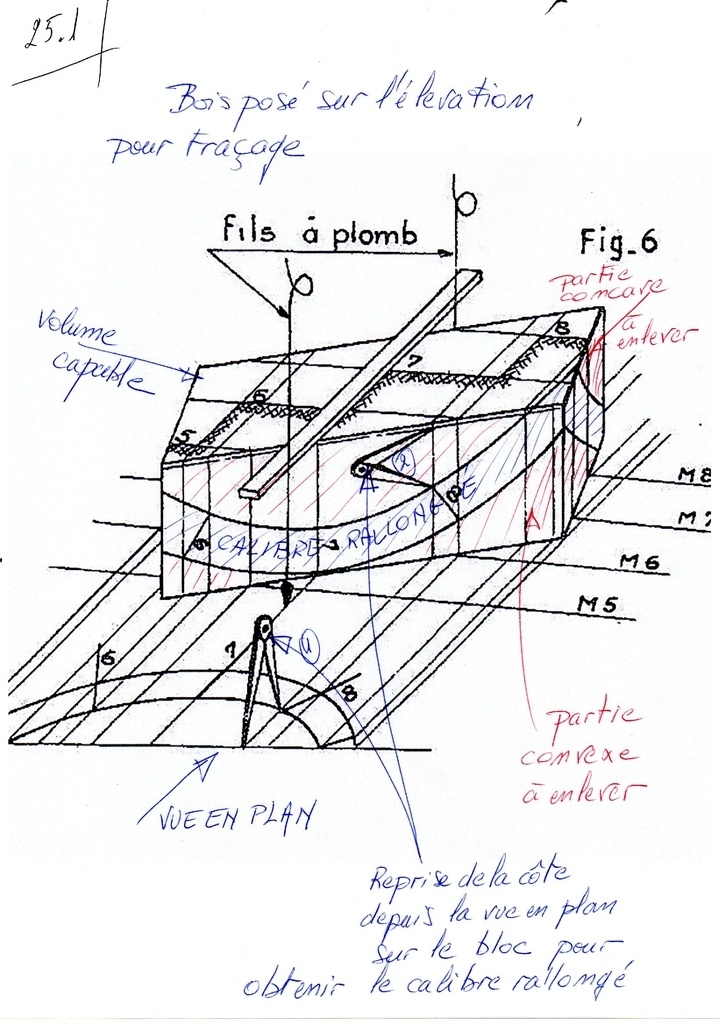 25.1
Bois posé sur l'élevation
pour traçage
Fils à plomb
Fig_6
partie
concave
à
enlever
Volume
capable
8
7
6
5
2
8
CALIBRE RALLONGÉ
6
7
M8
M7
M6
M5
1
7
6
8
partie
convexe
à enlever
VUE EN PLAN
Reprise de la côte
depuis la vue en plan
sur le bloc pour
obtenir le calibre rallongé